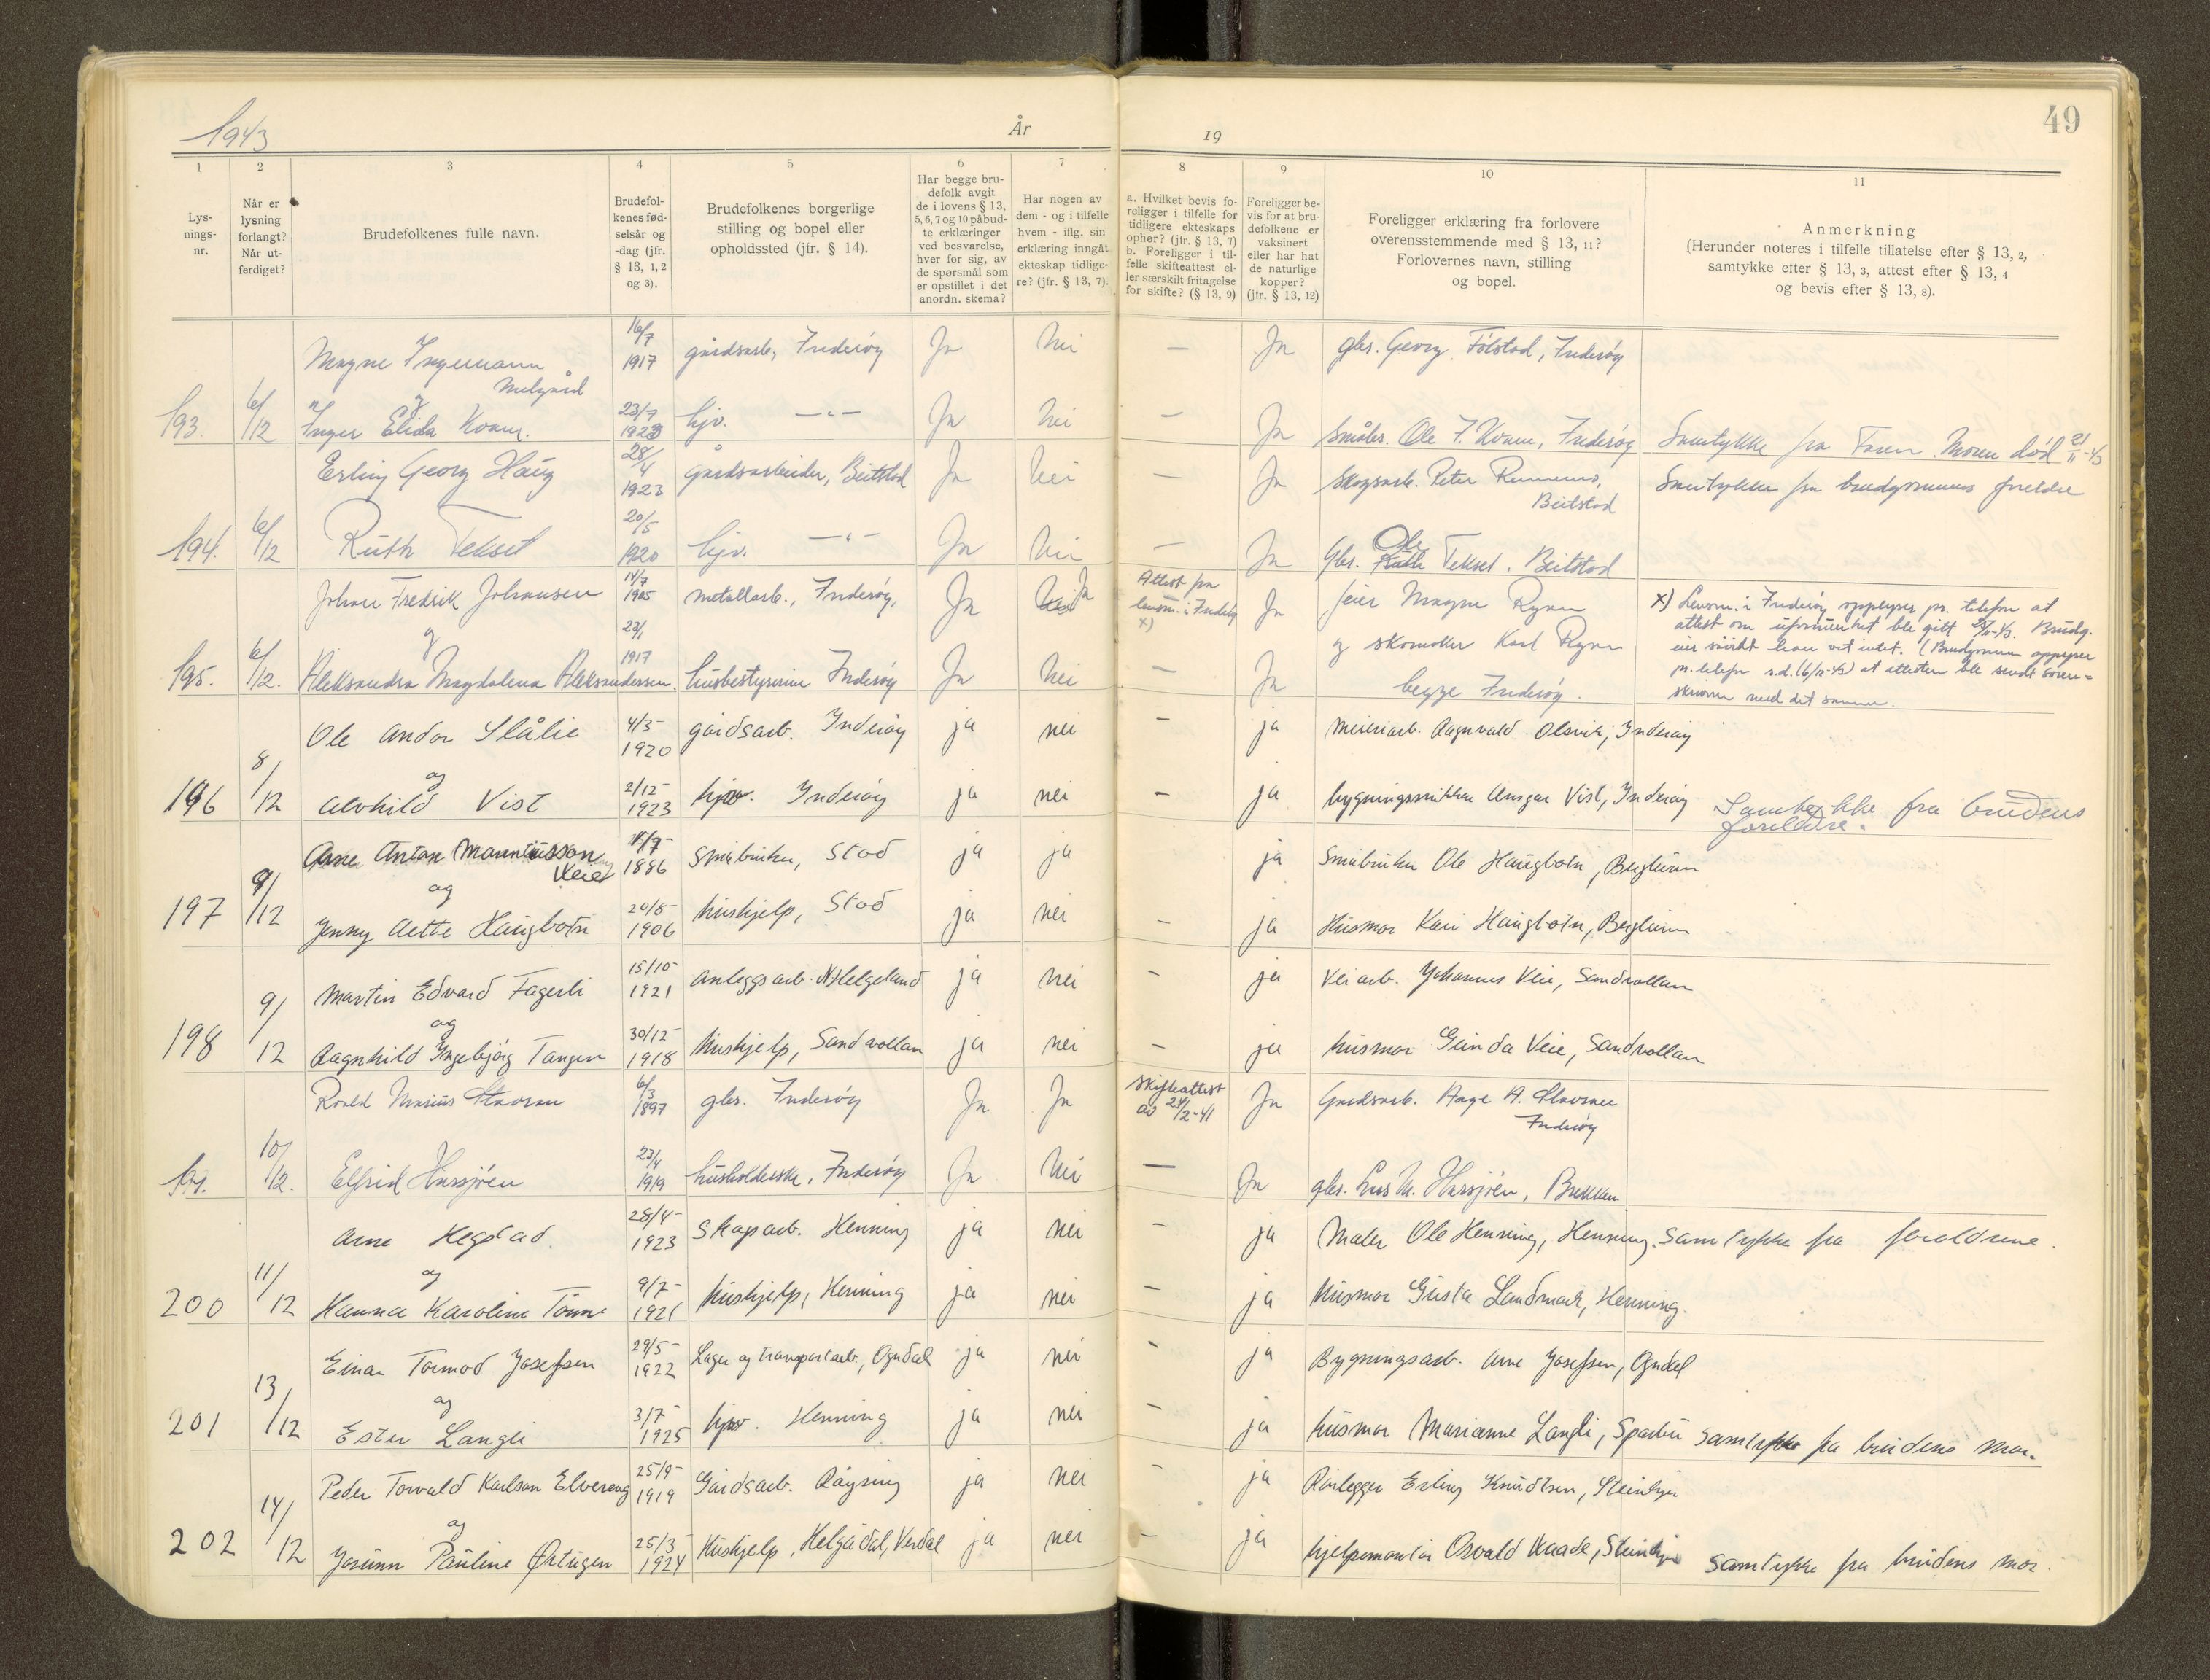 49
1943
År
19
1
2
3
4
5
6
7
8
9
10
11
Lys-
nings-
nr.
Når er
lysning
forlangt?
Når ut-
ferdiget?
Brudefolkenes fulle navn.
Brudefol-
kenes fød-
selsår og
-dag (jfr.
§ 13, 1, 2
og 3).
Brudefolkenes borgerlige
stilling og bopel eller
opholdssted (jfr. § 14).
Har begge bru-
defolk avgit
de i lovens § 13,
5, 6, 7 og 10 påbud-
te erklæringer
ved besvarelse,
hver for sig, av
de spørsmål som
er opstillet i det
anordn. skema?
Har nogen av
dem - og i tilfelle
hvem - iflg. sin
erklæring inngått
ekteskap tidlige-
re? (jfr. § 13, 7).
a. Hvilket bevis fo-
religger i tilfelle for
tidligere ekteskaps
ophør? (jfr. § 13, 7)
b. Foreligger i til-
felle skifteattest el-
ler særskilt fritagelse
for skifte? (§ 13, 9)
Foreligger be-
vis for at bru-
defolkene er
vaksinert
eller har hat
de naturlige
kopper?
(jfr. § 13, 12)
Foreligger erklæring fra forlovere
overensstemmende med § 13, 11?
Forlovernes navn, stilling
og bopel.
Anmerkning
(Herunder noteres i tilfelle tillatelse efter § 13, 2,
samtykke efter § 13, 3, attest efter § 13, 4
og bevis efter § 13, 8).
Magne Ingemann 16/7 1917 gårdsarb, Inderøy Ja Nei — Ja gbr. Georg Følstad, Inderøy
og
193. 6/12 Inger Elida Koam. 23/7 1923 hjv. —"— Ja Nei — Ja Småbr. Ole I. Koam, Inderøy Samtykke fra Faren. Moren død 21/11-43
Erling Georg Haug 28/4 1923 gårdsarbeider, Beitstad Ja Nei — Ja Skogsarb. Peter
Beitstad Samtykke fra brudgommens foreldre
194. 6/12 Ruth Tekset 20/5 1920 hjv. —"— Ja Nei — Ja Gbr. Ole Tekset. Beitstad
Johan Fredrik Johansen 14/7 1905 metallarb., Inderøy, Ja Ja Attest fra
lensm. i Inderøy
x) Ja feier Magne Ryan
og skomaker Karl Ryan
begge Inderøy.
x) Lensm. i Inderøy opplyser pr. telefon at
attest om uformuenhet ble gitt
og
195. 6/12. Aleksandra Magdalena Aleksandersen. 23/1 1917 husbestyrerinne Inderøy Ja Nei — Ja
Ole Andor Slålie 4/3- 1920 gårdsarb. Inderøy ja nei — ja meieriarb. Ragnvald Olsvik, Inderøy
og
196 8/12 Alvhild Vist 2/12- 1923 hjv. Inderøy ja nei — ja bygningssnikker Ansgar Vist, Inderøy Samtykke fra brudens
foreldre.
Arne Anton Marentiusson
Veie 1886 småbruker, Stod ja ja ja Småbruker Ole Haugbotn, Berglium
og
197 9/12 Jenny Aette Haugbotn 20/8- 1906 hushjelp, Stod ja nei — ja Husmor Kari Haugbotn, Berglium
Martin Edvard Fagerli 15/10- 1921 anleggsarb. N. Helgeland ja nei — ja Veiarb. Johannes Veie, Sandvollan
og
198 9/12 Ragnhild Ingebjørg Tangen 30/12- 1918 hushjelp, Sandvollan ja nei — ja husmor Gunda Veie, Sandvollan
Roald Marius 6/3 1897 gbr. Inderøy Ja Ja Skifteattest
av 24/2-41 Ja Gårdsarb. Aage A.
Inderøy
199. 10/12. Elfrid Harsjøen 23/4 1919 husholderske, Inderøy Ja Nei — Ja gbr. Lars M. Harsjøen, Brekken
Arne Hegstad. 28/4- 1923 Skogsarb. Henning ja nei — ja Maler Ole Henning, Henning. Samtykke fra foreldrene.
og
200 11/12 Hanna Karoline Tønne 9/7- 1921 hushjelp, Henning ja nei — ja husmor Gusta Landmark, Henning.
Einar Tormod Josefsen 29/5- 1922 Lager og transportarb., Ogndal ja nei — ja Bygningsarb. Arne Josefsen, Ogndal
og
201 13/12 Ester Langli 3/7- 1925 hjv. Henning ja nei — ja husmor Marianne Langli, Sparbu samtykke fra brudens mor.
Peder Torvald Karlson Elvereng 25/9- 1919 Gårdsarb. Røysing ja nei — ja Rørlegger Erling Knudtsen, Steinkjer
og
202 14/12 Jorunn Pauline Ørtugen 25/3- 1924 Hushjelp, Helgådal, Verdal ja nei — ja hjelpemontør Osvald Kaade, Steinkjer samtykke fra brudens mor.